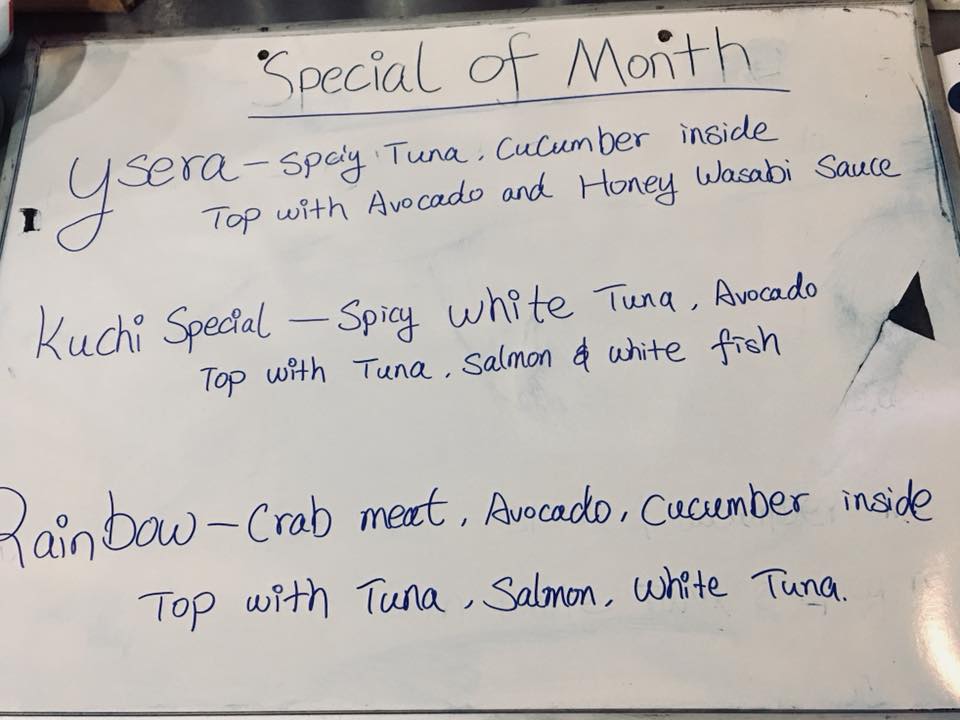 Special of Month
Ysera - Spciy Tuna, Cucumber inside
Top with Avocado and Honey Wasabi Sauce
Kuchi Special - Spicy White Tuna, Avocado
Top with Tuna, Salmon & White fish
Rainbow - Crab meat, Avocado, Cucumber inside
Top with Tuna, Salmon, White Tuna.